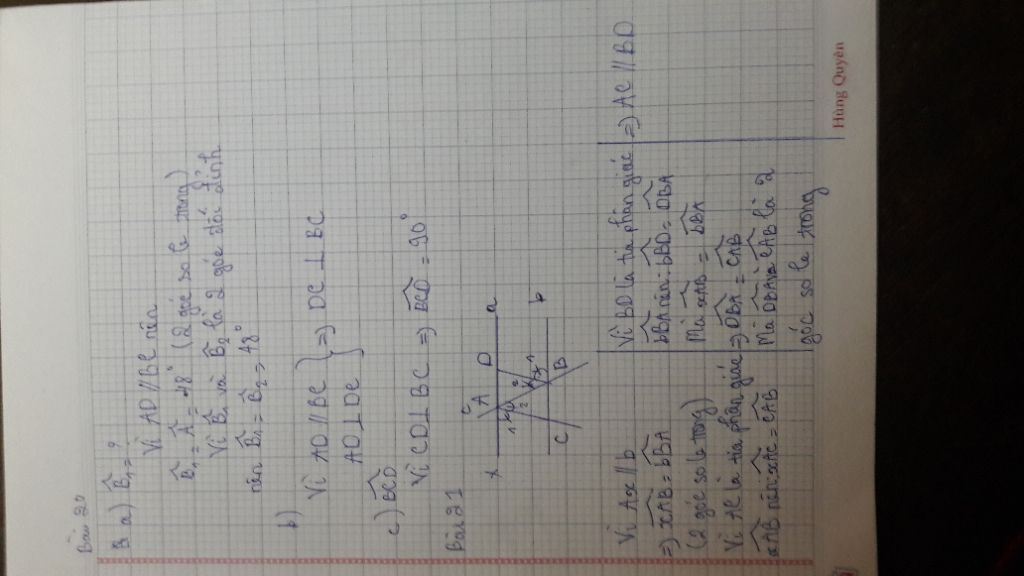 Bài 20
a) B̂₁ = ?
Vì AD // BC nên
B̂₁ = Â = 48° (2 góc so le trong)
Vì B̂₁ và B̂₂ là 2 góc đối đỉnh
nên B̂₁ = B̂₂ = 48°
b)
Vì AD // BC
AD ⊥ DC
} => DC ⊥ BC
c) BCD
Vì CD ⊥ BC => BCD = 90°
Bài 21
c A D
x a
1 2
2
1
b
C B
Vì Ax // b
=> xAB = bBA
(2 góc so le trong)
Vì AC là tia phân giác
xAB nên: xAC = CAB
Vì BD là tia phân giác
bBA nên: bBD = DBA
Mà xAB = bBA
=> DBA = CAB
Mà DBA và CAB là 2
góc so le trong
=> AC // BD
Hùng Quyên